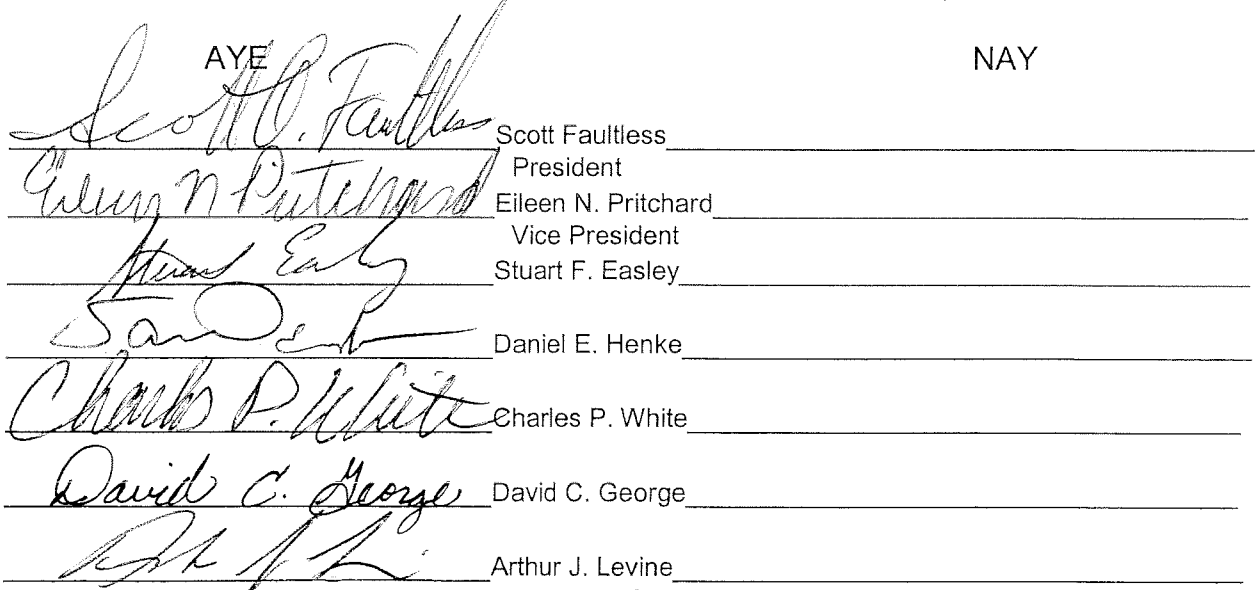 AYE NAY
Scott O. Faultless Scott Faultless
President
Eileen N Pritchard Eileen N. Pritchard
Vice President
Stuart Easley Stuart F. Easley
Daniel E. Henke
Charles P. White Charles P. White
David C. George David C. George
Arthur J. Levine